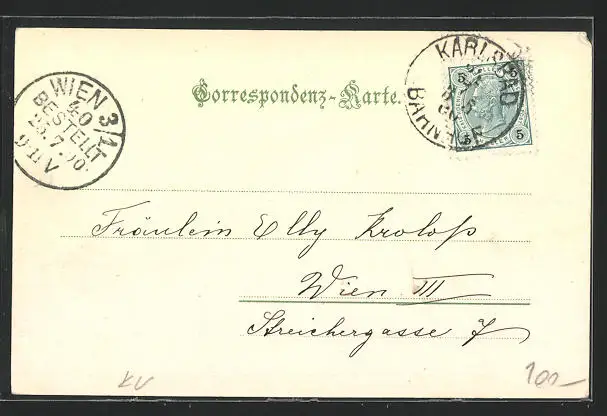 WIEN 3/1
40
BESTELLT
25.7.00.
9-11 V
Correspondenz-Karte.
KARLSBAD
BAHNHOF
5 5
Fräulein Elly Kroloß
Wien III
Streichergasse 7
KV
100-